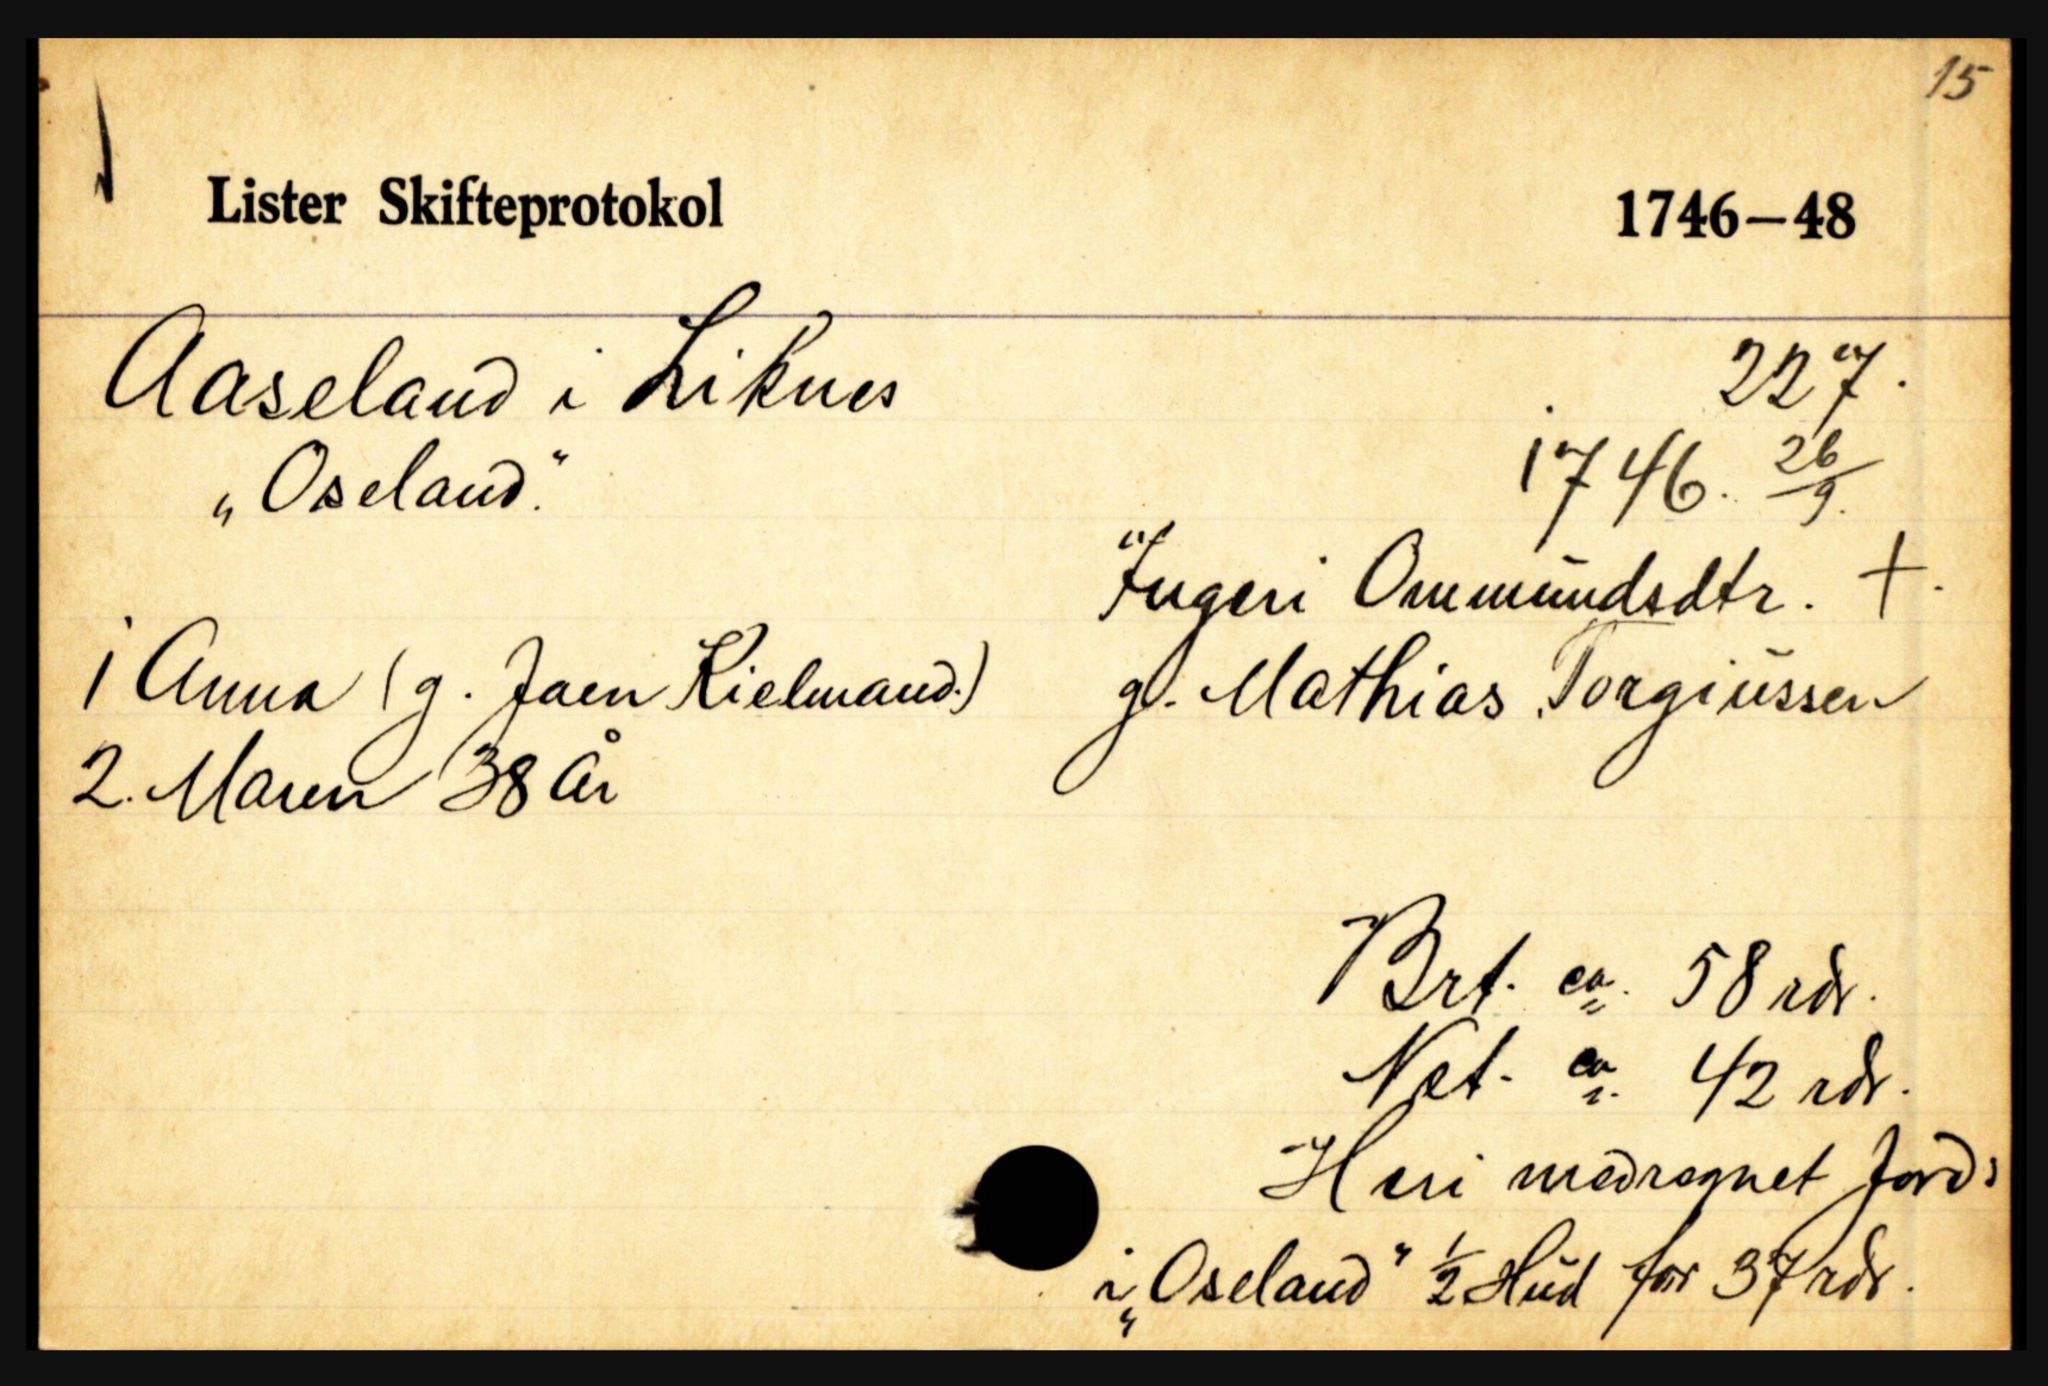 15
Lister Skifteprotokol 1746–48
Aaseland i Liknes 227.
„Oseland." 1746. 26/9.
Ingeri Ommundsdtr. +.
1 Anna (g. Jaen Kielmand.) g. Mathias Torgiussen
2. Maren 38 år
Brt. ca. 58 rdr.
Net. ca. 42 rdr.
Heri medregnet Jords
i „Oseland" 1/2 Hud for 37 rdr.